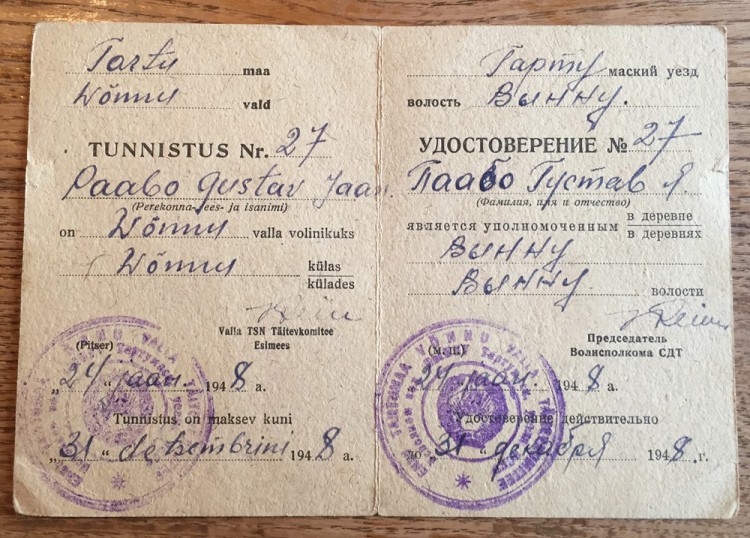 Tartu maa
Wõnnu vald
TUNNISTUS Nr. 27
Paabo Gustav Jaan
(Perekonna-, ees- ja isanimi)
on Wõnnu valla volinikuks
Wõnnu külas
külades
Valla TSN Täitevkomitee
Esimees
(Pitser)
„24" jaan. 1948 a.
Tunnistus on maksev kuni
„31" detsembrini 1948 a.
Тартумаский уезд
волость Вынну.
УДОСТОВЕРЕНИЕ № 27
Паабо Густав Я.
(Фамилия, имя и отчество)
является уполномоченным в деревне
в деревнях
Вынну
Вынну. волости
Председатель
Волисполкома СДТ
(М. П.)
„24" jaan. 1948 а.
Удостоверение действительно
до „31" декабря 1948 г.